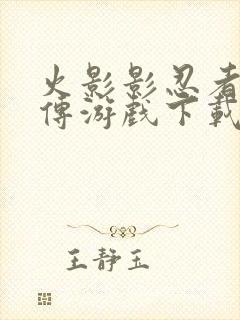 火影影忍者
傳游戏下载
王静玉